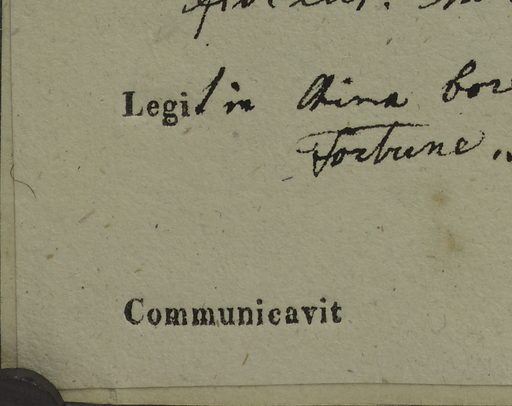 Legit in China bor
Fortune.
Communicavit